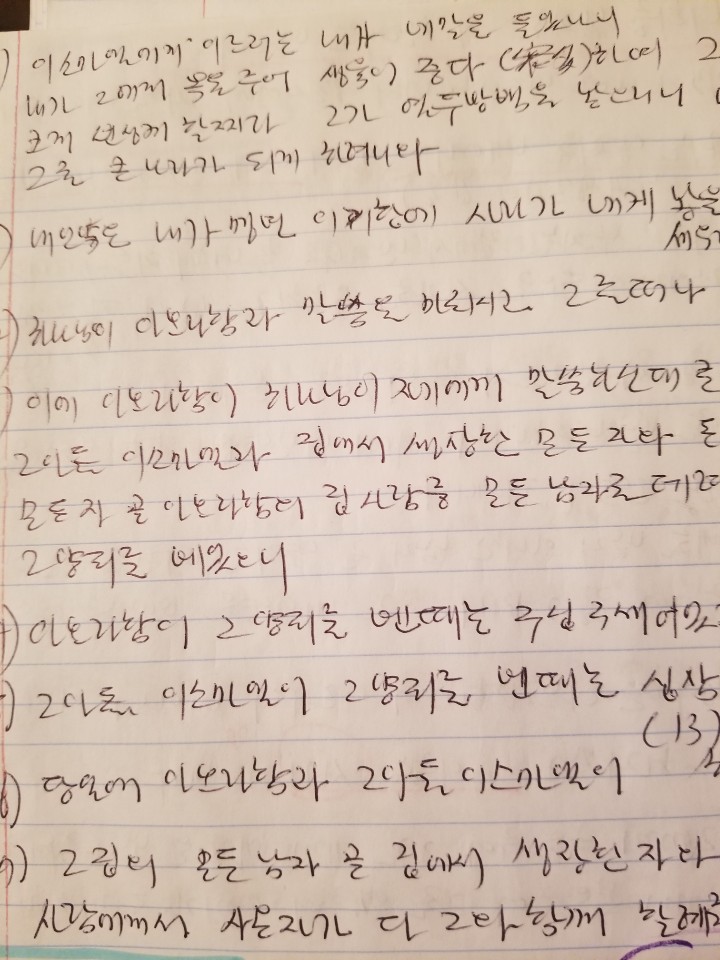 ) 이스마엘에게 이르러는 내가 네말을 들었나니
내가 그에게 복을 주어 생육이 중다 (衆多)하여 그
크게 번성케 할찌라 그가 열두방백을 낳으리니
그로 큰 나라가 되게 하려니와
) 내언약은 내가 명년 이 기한에 사라가 네게 낳을
세우
) 하나님이 아브라함과 말씀을 마치시고 그를떠나
) 이에 아브라함이 하나님이 자기에게 말씀하신대로
그아들 이스마엘과 집에서 생장한 모든 자와 돈
모든자 곧 아브라함의 집 사람중 모든 남자를 데려
그양피를 베었으니
) 아브라함이 그 양피를 벤때는 구십 구세 이었
) 그아들 이스마엘이 그 양피를 벤때는 십삼
(13)
6) 당일에 아브라함과 그아들 이스마엘이
) 그집의 모든 남자 곧 집에서 생장한 자와
사람에게서 사온자가 다 그와 함께 할례를